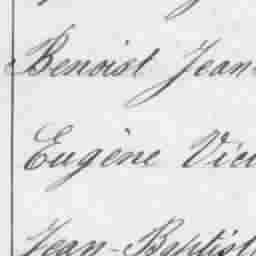 Benoist Jean
Eugène Vic
Jean-Baptist